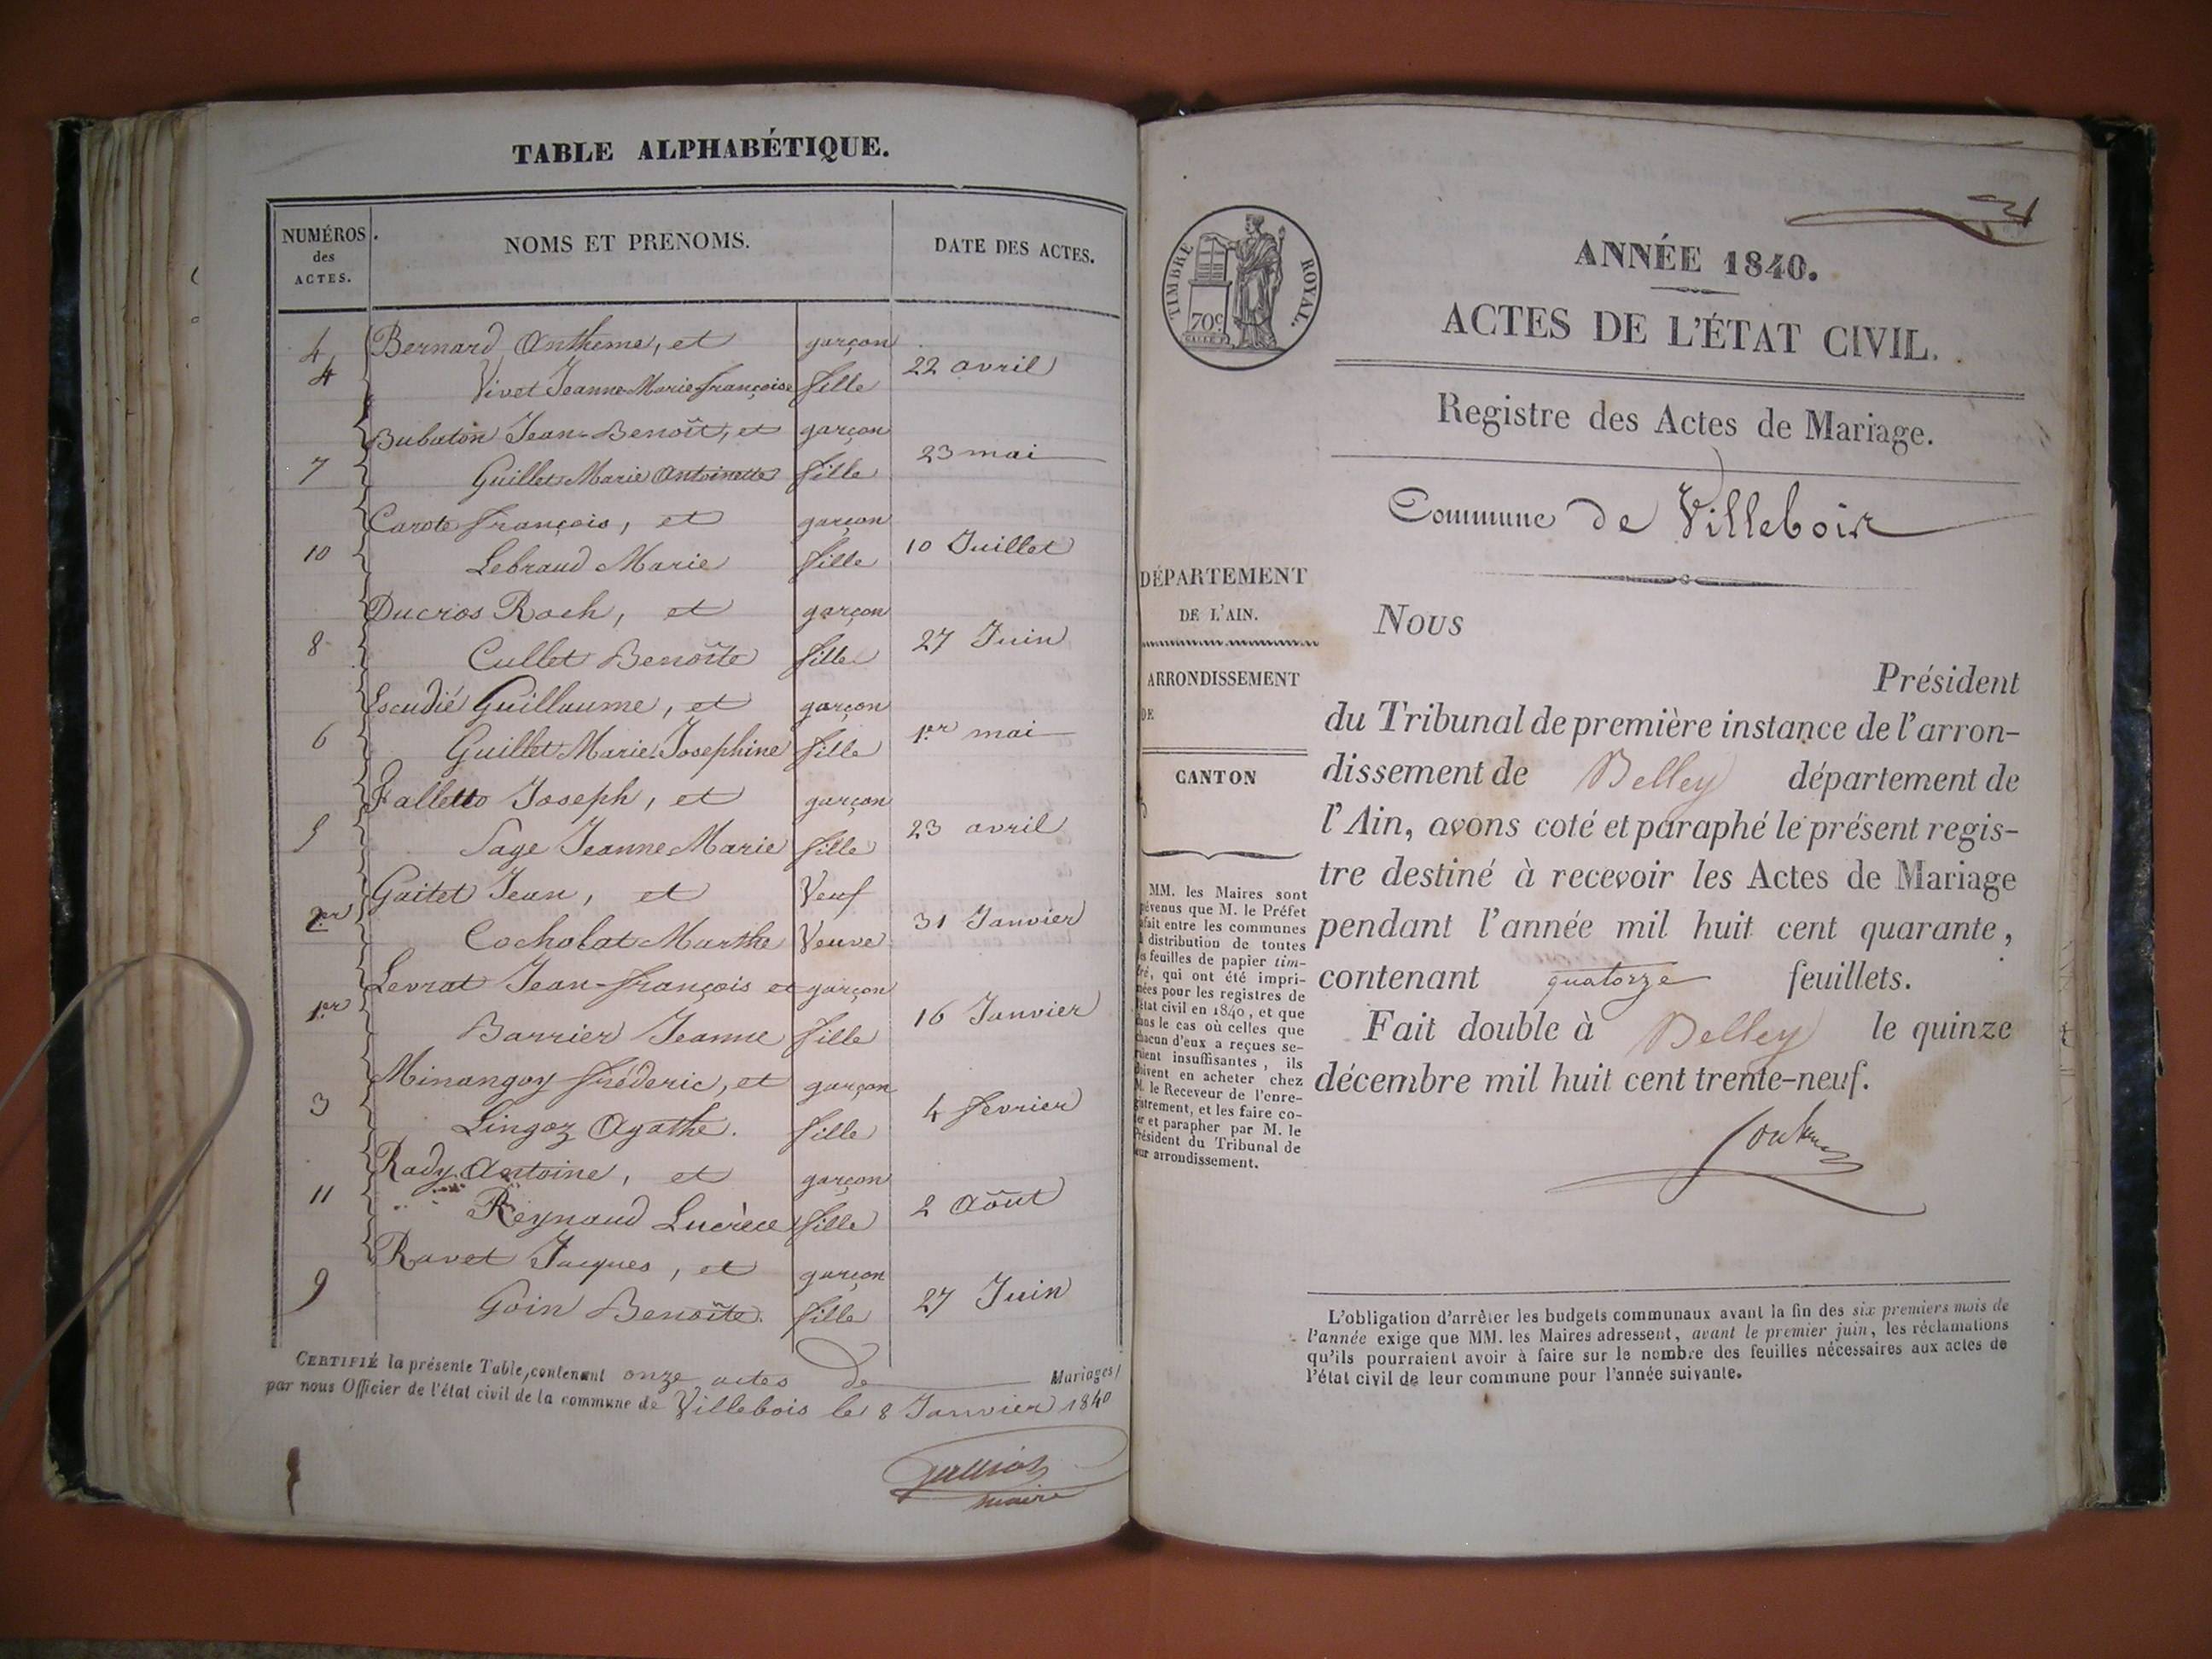 TABLE ALPHABÉTIQUE.
NUMÉROS
des
ACTES.
NOMS ET PRENOMS.
DATE DES ACTES.
4 Bernard Antheme, et garçon
4 Vivet Jeanne-Marie-françoise fille 22 avril
Bubaton Jean-Benoît, et garçon
7 Guillet Marie Antoinette fille 23 mai
Carote françois, et garçon
10 Lebraud Marie fille 10 Juillet
Ducros Roch, et garçon
8 Cullet Benoîte fille 27 Juin
Escudié Guillaume, et garçon
6 Guillet Marie-Josephine fille 1er mai
Falletto Joseph, et garçon
5 Sage Jeanne-Marie fille 23 avril
Gaitet Jean, et Veuf
2 Cocholat Marthe Veuve 31 Janvier
Levrat Jean-françois et garçon
1er Barrier Jeanne fille 16 Janvier
Minangoy fréderic, et garçon
3 Lingoz Agathe. fille 4 fevrier
Rady Antoine, et garçon
11 Reynaud Lucrèce fille 2 Août
Ravet Jacques, et garçon
9 Goin Benoîte. fille 27 Juin
CERTIFIÉ la présente Table, contenant onze actes de Mariages
par nous Officier de l'état civil de la commune de Villebois le 8 Janvier 1840
maire
TIMBRE ROYAL.
70c
ANNÉE 1840.
ACTES DE L'ÉTAT CIVIL.
Registre des Actes de Mariage.
Commune de Villebois
DÉPARTEMENT
DE L'AIN.
ARRONDISSEMENT
DE
CANTON
MM. les Maires sont
prévenus que M. le Préfet
fait entre les communes
distribution de toutes
les feuilles de papier tim-
bré, qui ont été impri-
mées pour les registres de
l'état civil en 1840, et que
dans le cas où celles que
chacun d'eux a reçues se-
raient insuffisantes, ils
doivent en acheter chez
M. le Receveur de l'enre-
gistrement, et les faire co-
ter et parapher par M. le
Président du Tribunal de
leur arrondissement.
Nous
Président
du Tribunal de première instance de l'arron-
dissement de Belley département de
l'Ain, avons coté et paraphé le présent regis-
tre destiné à recevoir les Actes de Mariage
pendant l'année mil huit cent quarante,
contenant quatorze feuillets.
Fait double à Belley le quinze
décembre mil huit cent trente-neuf.
L'obligation d'arrêter les budgets communaux avant la fin des six premiers mois de
l'année exige que MM. les Maires adressent, avant le premier juin, les réclamations
qu'ils pourraient avoir à faire sur le nombre des feuilles nécessaires aux actes de
l'état civil de leur commune pour l'année suivante.